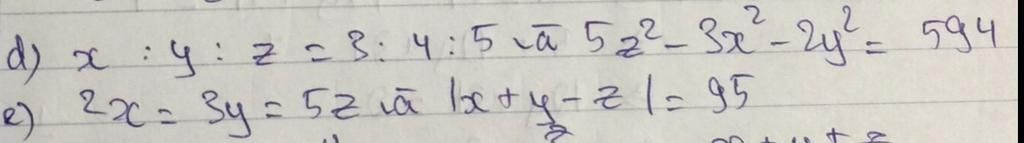 d) x : y : z = 3 : 4 : 5 và 5z² - 3x² - 2y² = 594
e) 2x = 3y = 5z và |x + y - z| = 95